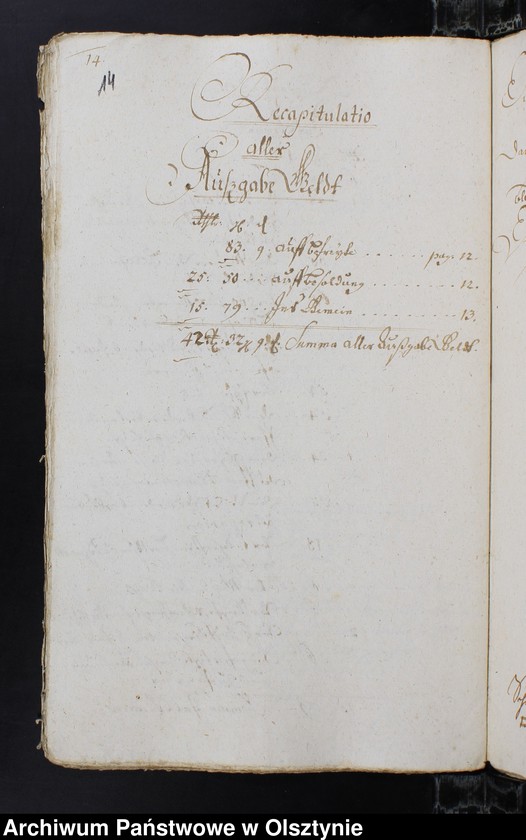 14.
14
Recapitulatio
aller
Außgabe Geldt
83. 9. auff
pag: 12.
25: 50 . . . auff besoldung . . . . . . . . . 12.
15. 79 . . Ins Gemein . . . . . . . . . 13.
42 32 9 Summa aller Außgabe Geldt.
Archiwum Państwowe w Olsztynie